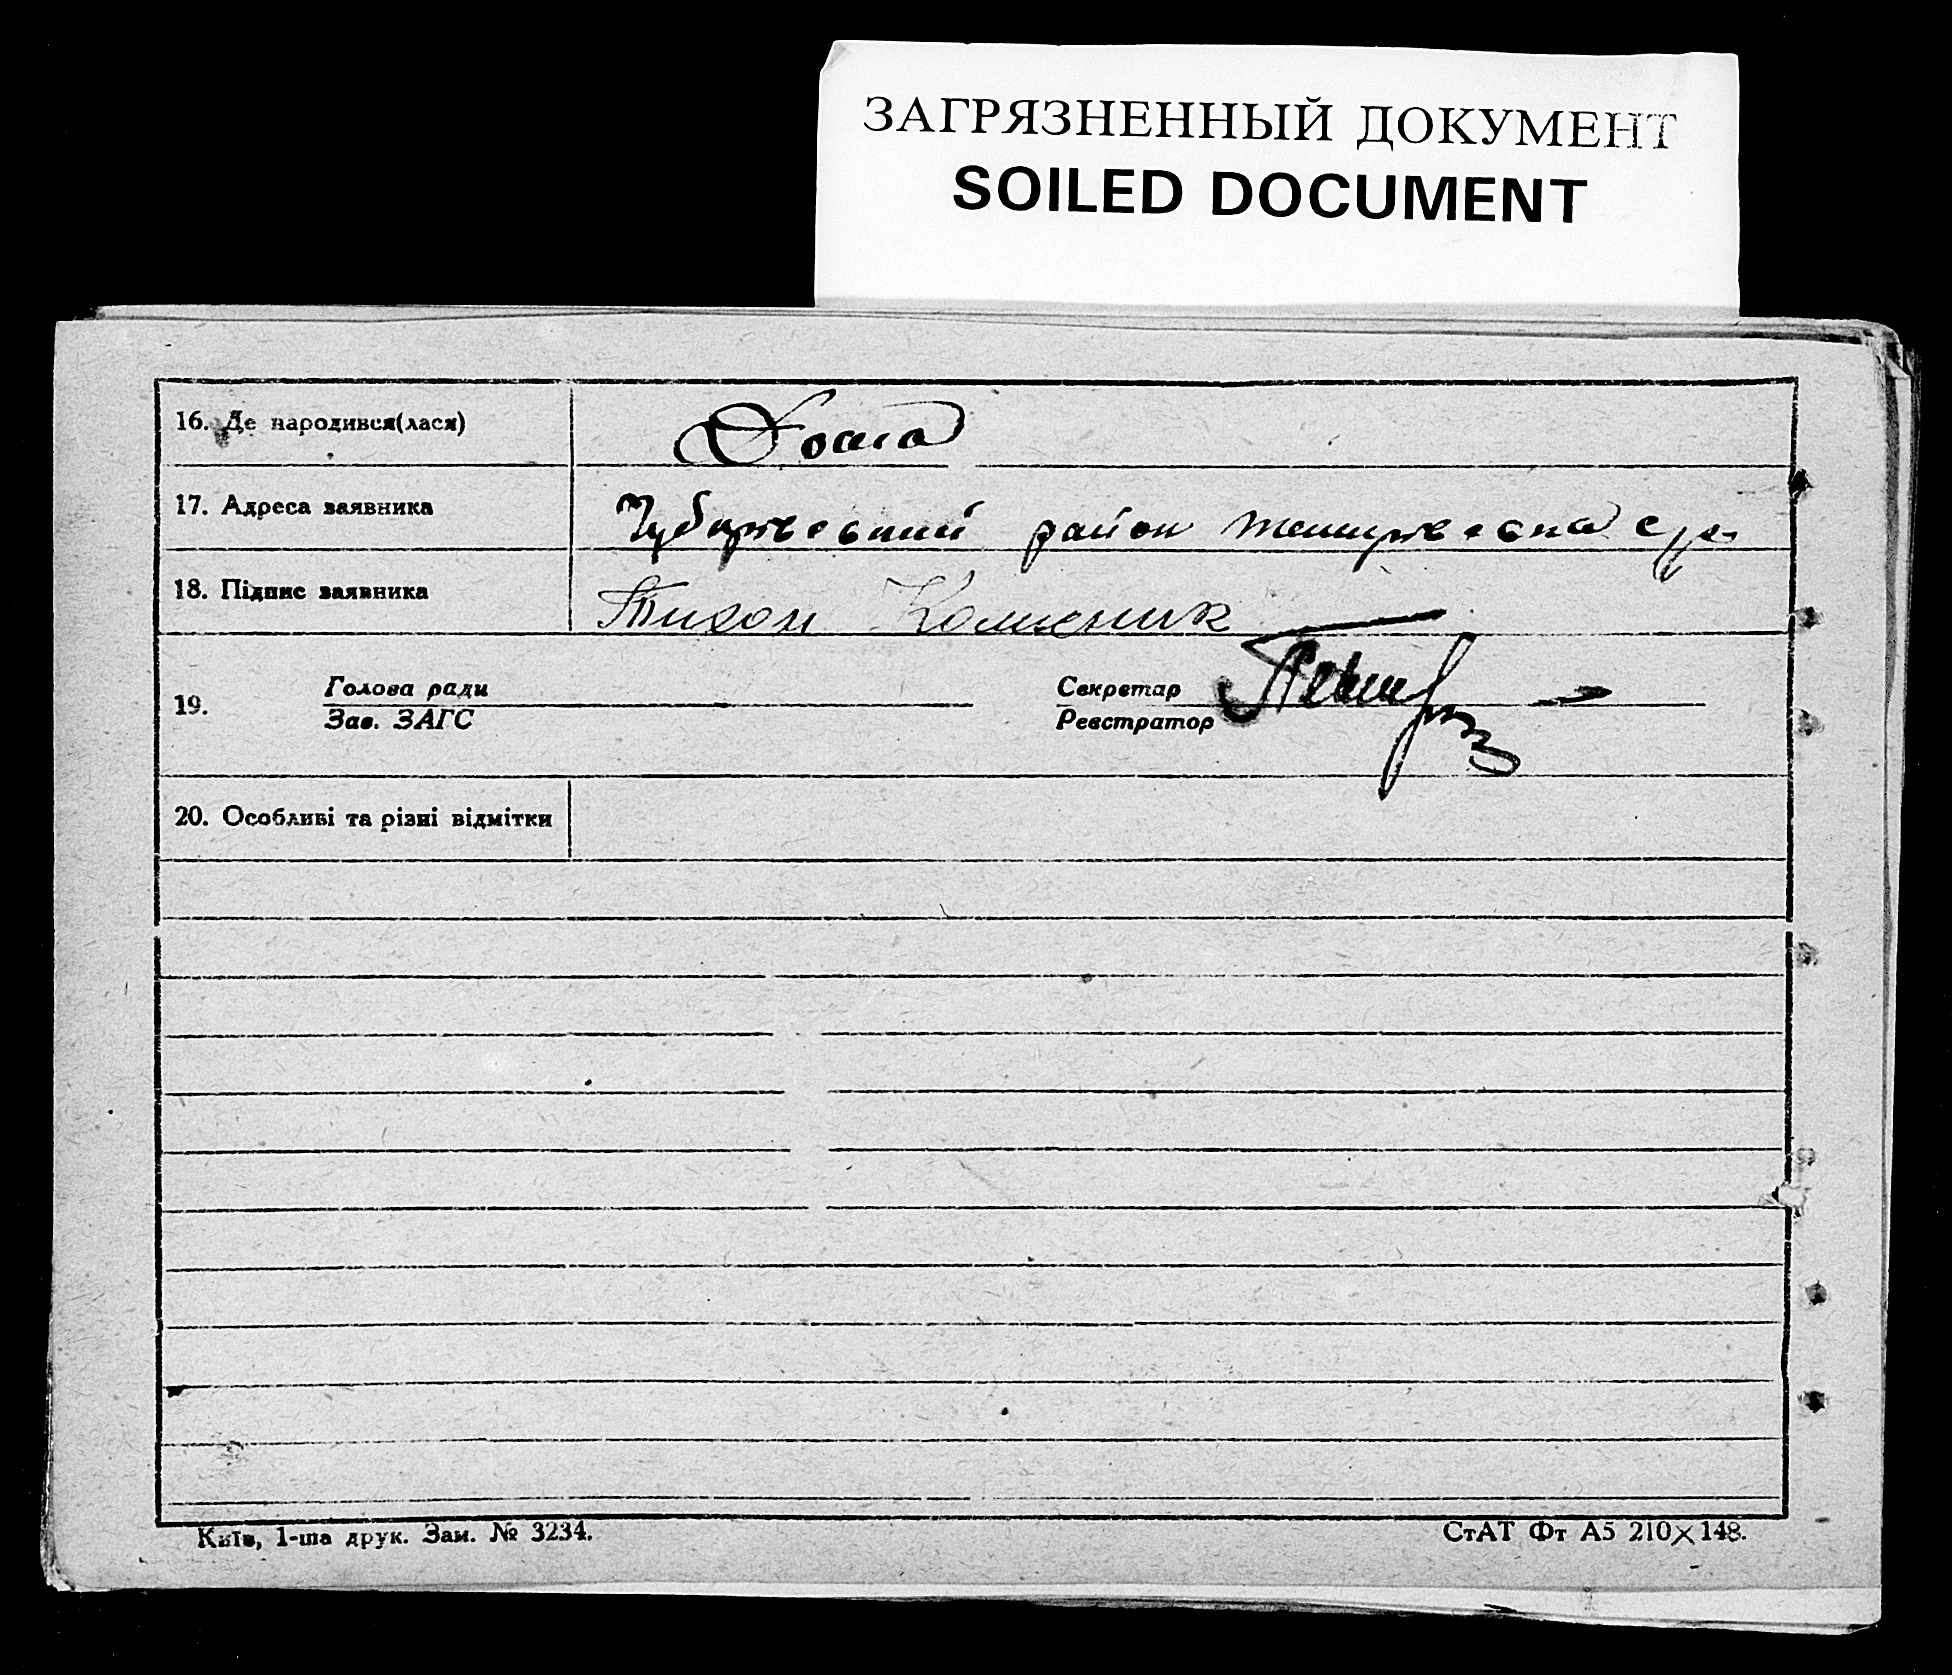 ЗАГРЯЗНЕННЫЙ ДОКУМЕНТ
SOILED DOCUMENT
16. Де народився(лася) Дома
17. Адреса заявника район
18. Підпис заявника Тихон
19. Голова ради Секретар
Зав. ЗАГС Реєстратор
20. Особливі та різні відмітки
Київ, 1-ша друк. Зам. № 3234. СтАТ Фт А5 210×148.